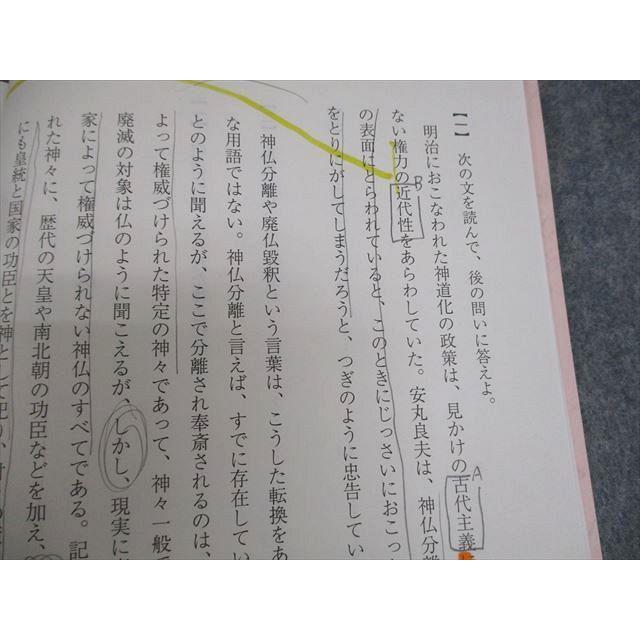 【一】 次の文を読んで、後の問いに答えよ。
明治におこなわれた神道化の政策は、見かけの古代主義
A
ない権力の近代性をあらわしていた。安丸良夫は、神仏分離
B
の表面にとらわれていると、このときにじっさいにおこっ
をとりにがしてしまうだろうと、つぎのように忠告してい
神仏分離や廃仏毀釈という言葉は、こうした転換をあ
な用語ではない。神仏分離と言えば、すでに存在してい
とのように聞えるが、ここで分離され奉斎されるのは、
よって権威づけられた特定の神々であって、神々一般で
廃滅の対象は仏のように聞こえるが、しかし、現実に
家によって権威づけられない神仏のすべてである。記
れた神々に、歴代の天皇や南北朝の功臣などを加え、
にも皇統と国家の功臣とを神として祀り、